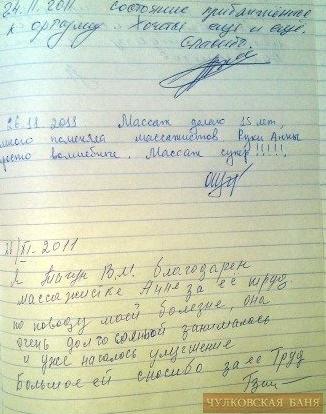 24.11.2011 состояние приближённое
к оргазму. Хочется ещё и ещё.
Спасибо.
26.11 2011 Массаж делаю 15 лет,
много поменяла массажистов Руки Анны
просто волшебные. Массаж супер!!!!!
XI-2011
Я В.М. благодарен
массажистке Анне за её труд
по поводу моей болезне, она
очень долго со мной занималась
и уже началось улучшение
Большое ей спасибо за её Труд
ЧУЛКОВСКАЯ БАНЯ